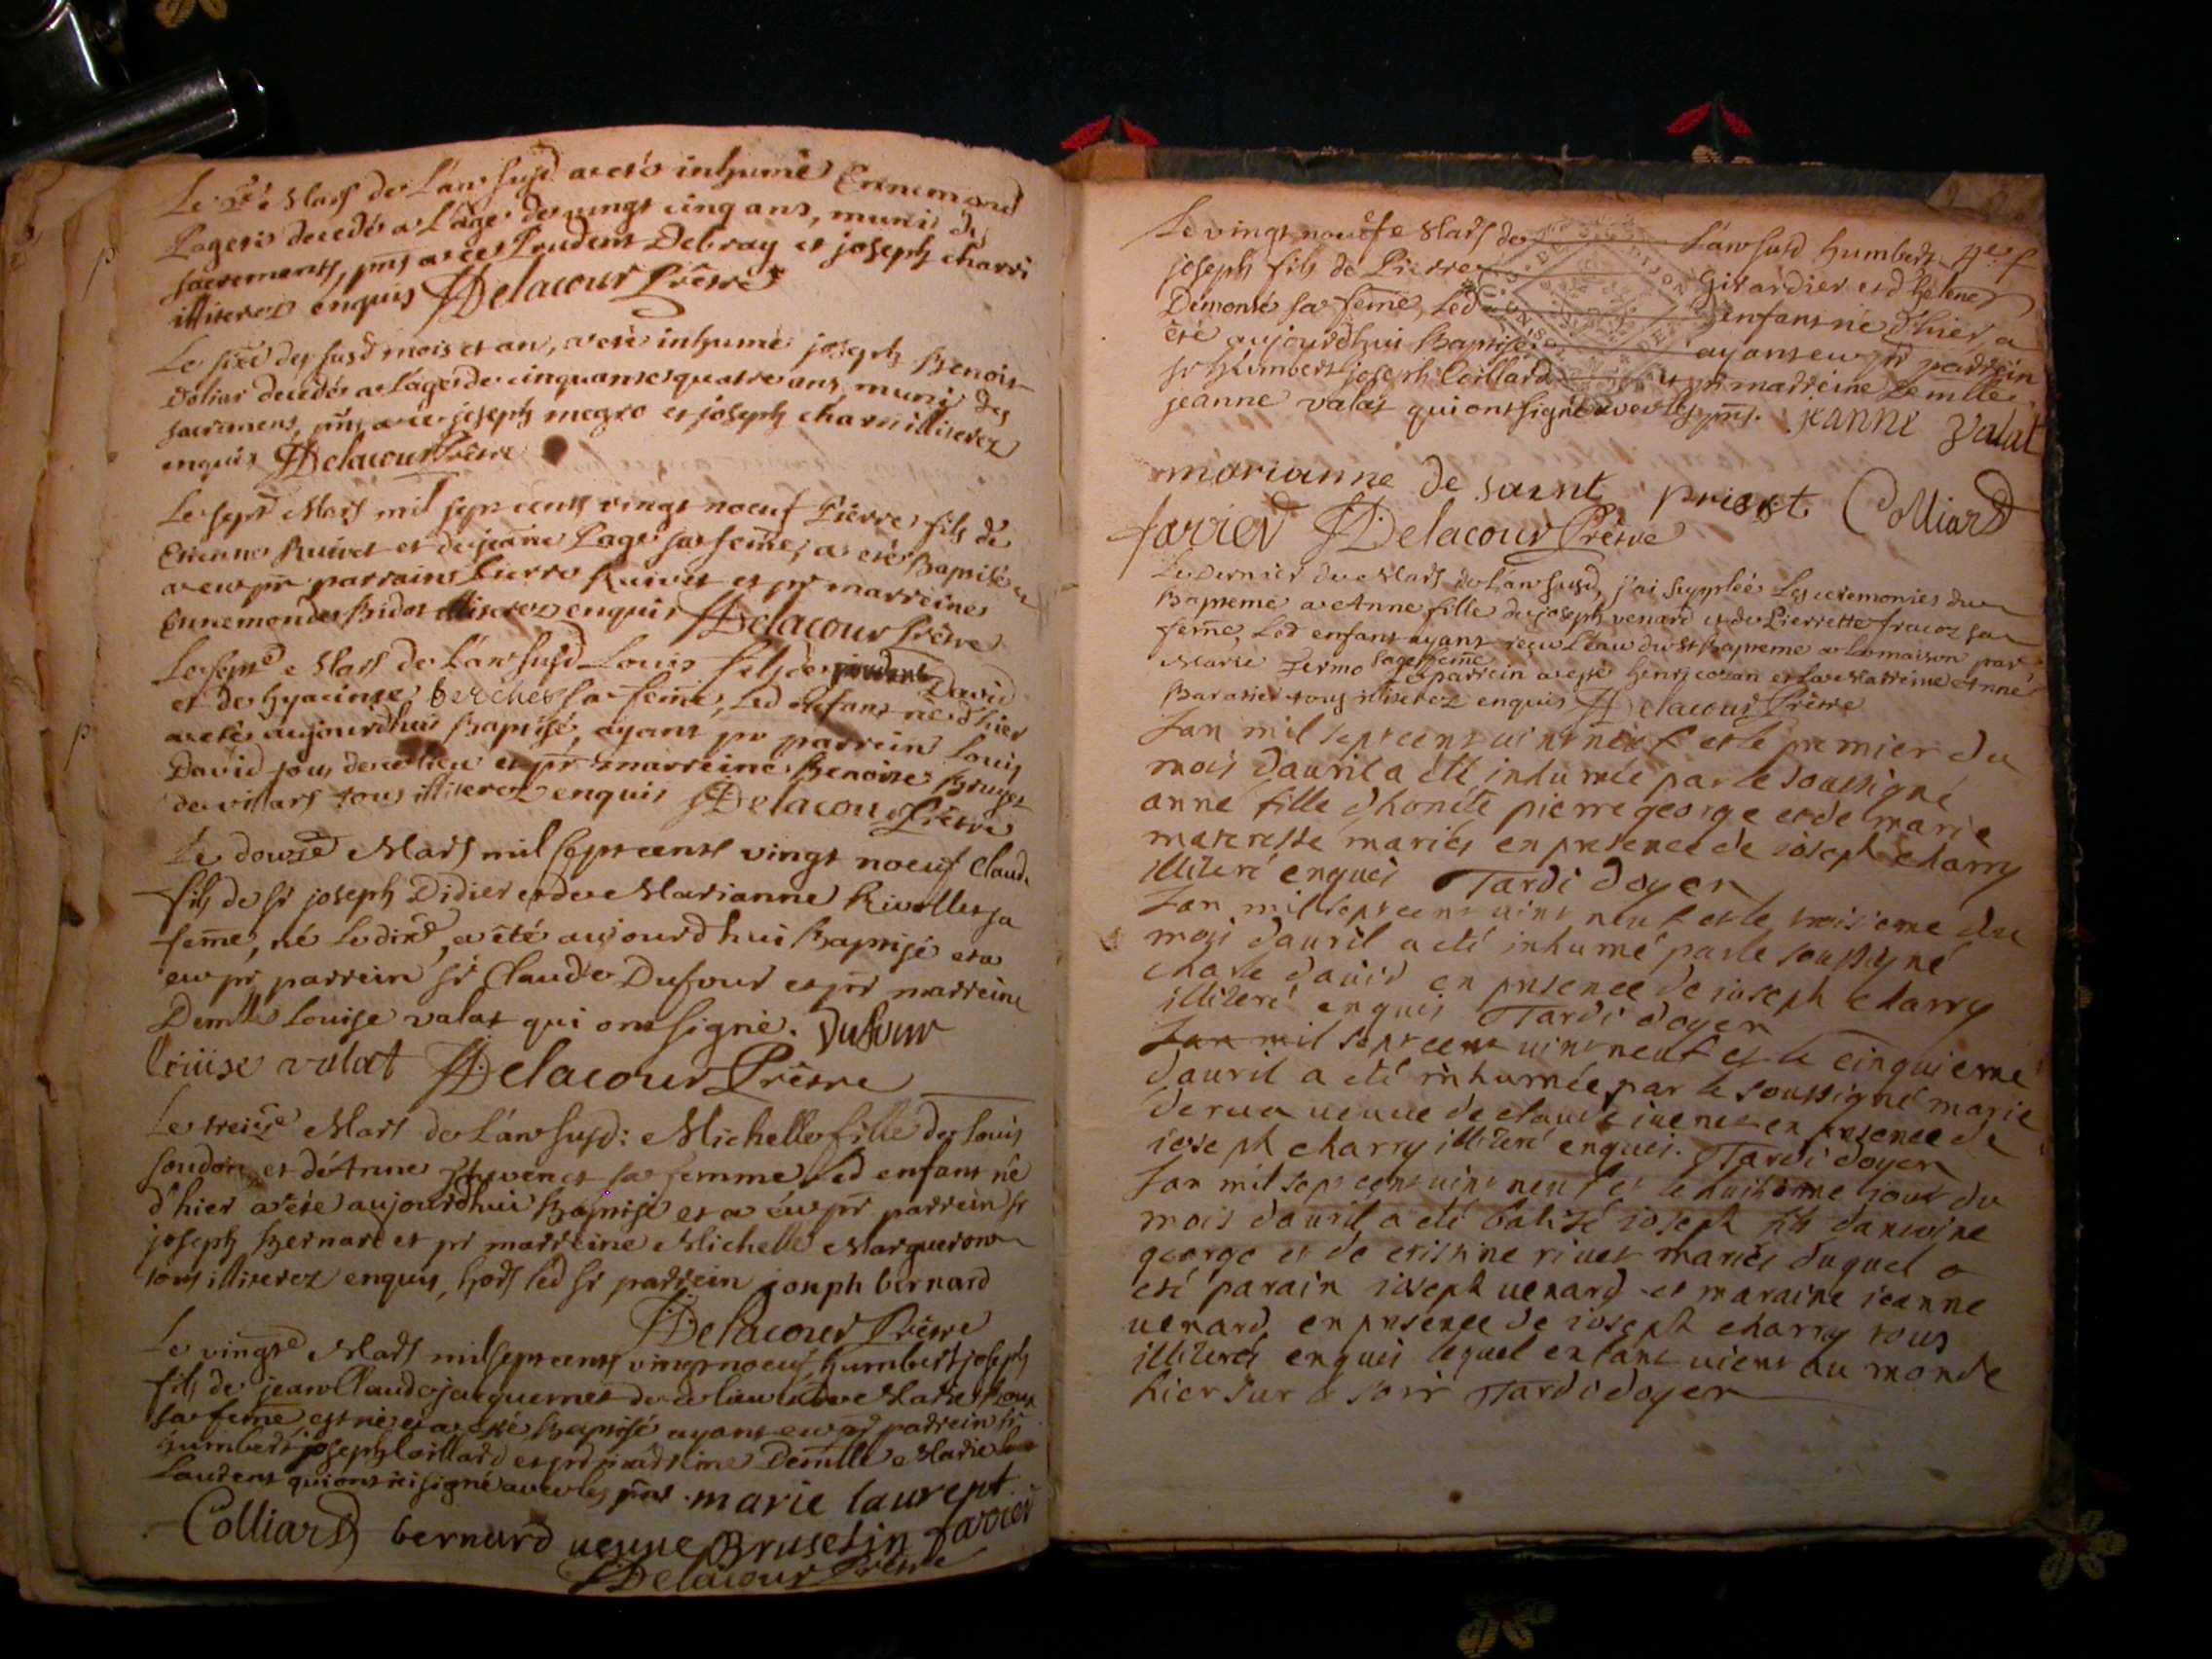 Mars de l'an susd a eté inhumé Ennemond
Pageti decedé a l'âge de vingt cinq ans, muni des
sacrements, pnts avec Prudent Debray et joseph charri
illiterez enquis Delacour Prêtre
Le six.e des susd mois et an, a eté inhumé joseph Benoit
decedé a l'âge de cinquante quatre ans, muni des
sacremens, pnts avec joseph megro et joseph charri illiterez
enquis Delacour Prêtre
Le sept.e Mars mil sept cents vingt noeuf Pierre fils de
Etienne Ruivet et de jeanne Page sa feme, a eté Baptisé
a eu pr parrain Pierre Ruivet et pr marreine
Ennemonde Bidot illiterez enquis Delacour Prêtre
Le sept.e Mars de l'an susd Louis fils de prudent David
et de hyacinte berches sa feme, led enfant né d'hier
a eté aujourdhui Baptisé, ayant pr parrein Louis
David tous de ce lieu et pr marreine Benoite Bruyet
de villars tous illiterez enquis Delacour Prêtre
Le douze.e Mars mil sept cents vingt noeuf Claude
fils de sr joseph Didier et de Marianne Rivolles sa
feme, né le dix.e, a été aujourdhui Baptisé et a
eu pr parrein sr Claude Dufour et pr marreine
Demlle Louise valat qui ont signé. Dufour
loüise valat Delacour Prêtre
Le treiz.e Mars de l'an susd: Michelle fille de Louis
soudon et d'Anne Thevenet sa femme, led enfant né
d'hier a été aujourdhui Baptisé et a eu pr parrein sr
joseph Bernard et pr marreine Michelle Marqueron
tous illiterez enquis, hors led sr parrein joseph bernard
Delacour Prêtre
Le vingt.e Mars mil sept cents vingt noeuf, humbert joseph
fils de jean Claude jacquemet de ce lieu et de Marie
sa feme est né et a eté Baptisé ayant eu pr parrein sr
humbert joseph Coillard et pr marreine Demlle Marie
Laurent qui ont ici signé avec les pnts. marie laurent
Colliard bernard ueuue Bruselin farrier
Delacour Prêtre
Le vingt noeufe Mars de l'an susd humbert
joseph fils de Pierre Girardier et d'helene
Démonté sa feme, led enfant né d'hier, a
été aujourdhui Baptisé, ayant eu pr parrein
sr humbert joseph Coillard et pr marreine Demlle
jeanne valat qui ont signé avec les pnts. jeanne valat
marianne de saint priest Colliard
farrier Delacour Prêtre
Le dernier de Mars de l'an susd, j'ai suppléé les ceremonies du
Bapteme a Anne fille de joseph venard et de Pierrette fracoz sa
feme, led enfant ayant reçu l'eau du st Bapteme a la maison par
Marie Termo sagefeme le parrein a eté henry cozan et la marreine Anne
Baratier tous illiterez enquis Delacour Prêtre
Lan mil sept cent uint neuf et le premier du
mois dauril a été inhumée par le soussigné
anne fille dhonête pierre george et de marie
materesse mariés en presence de joseph charry
illiteré enquis Tardi doyen
Lan mil sept cent uint neuf et le troisieme du
mois dauril a eté inhumé par le soussigné
charle dauid en presence de joseph charry
illiteré enquis Tardi doyen
Lan mil sept cent uint neuf et le cinquieme
dauril a eté inhumée par le soussigné marie
derua ueuue de claude iuenet en presence de
joseph charry illiteré enquis. Tardi doyen
Lan mil sept cent uint neuf et le huitieme jour du
mois dauril a eté batisé joseph fils dantoine
george et de cristine riuet mariés duquel a
eté parain joseph uenard et maraine jeanne
uenard en presence de joseph charry tous
illiterés enquis lequel enfant uient au monde
hier sur le soir Tardi doyen